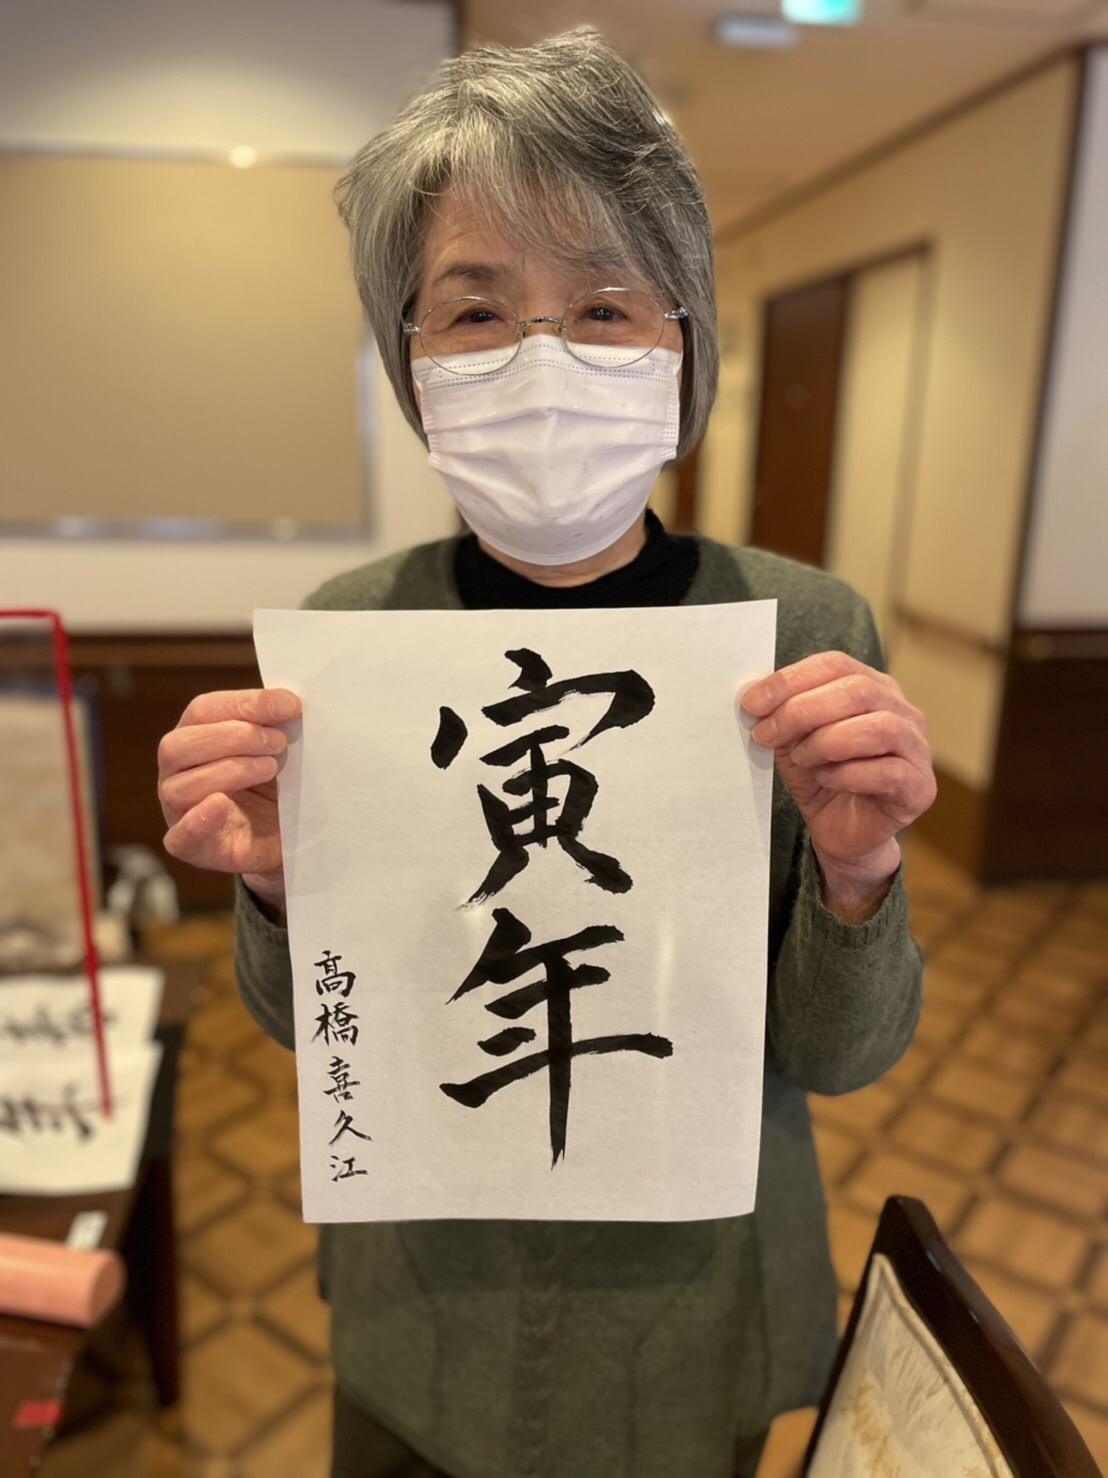 寅年
髙橋喜久江